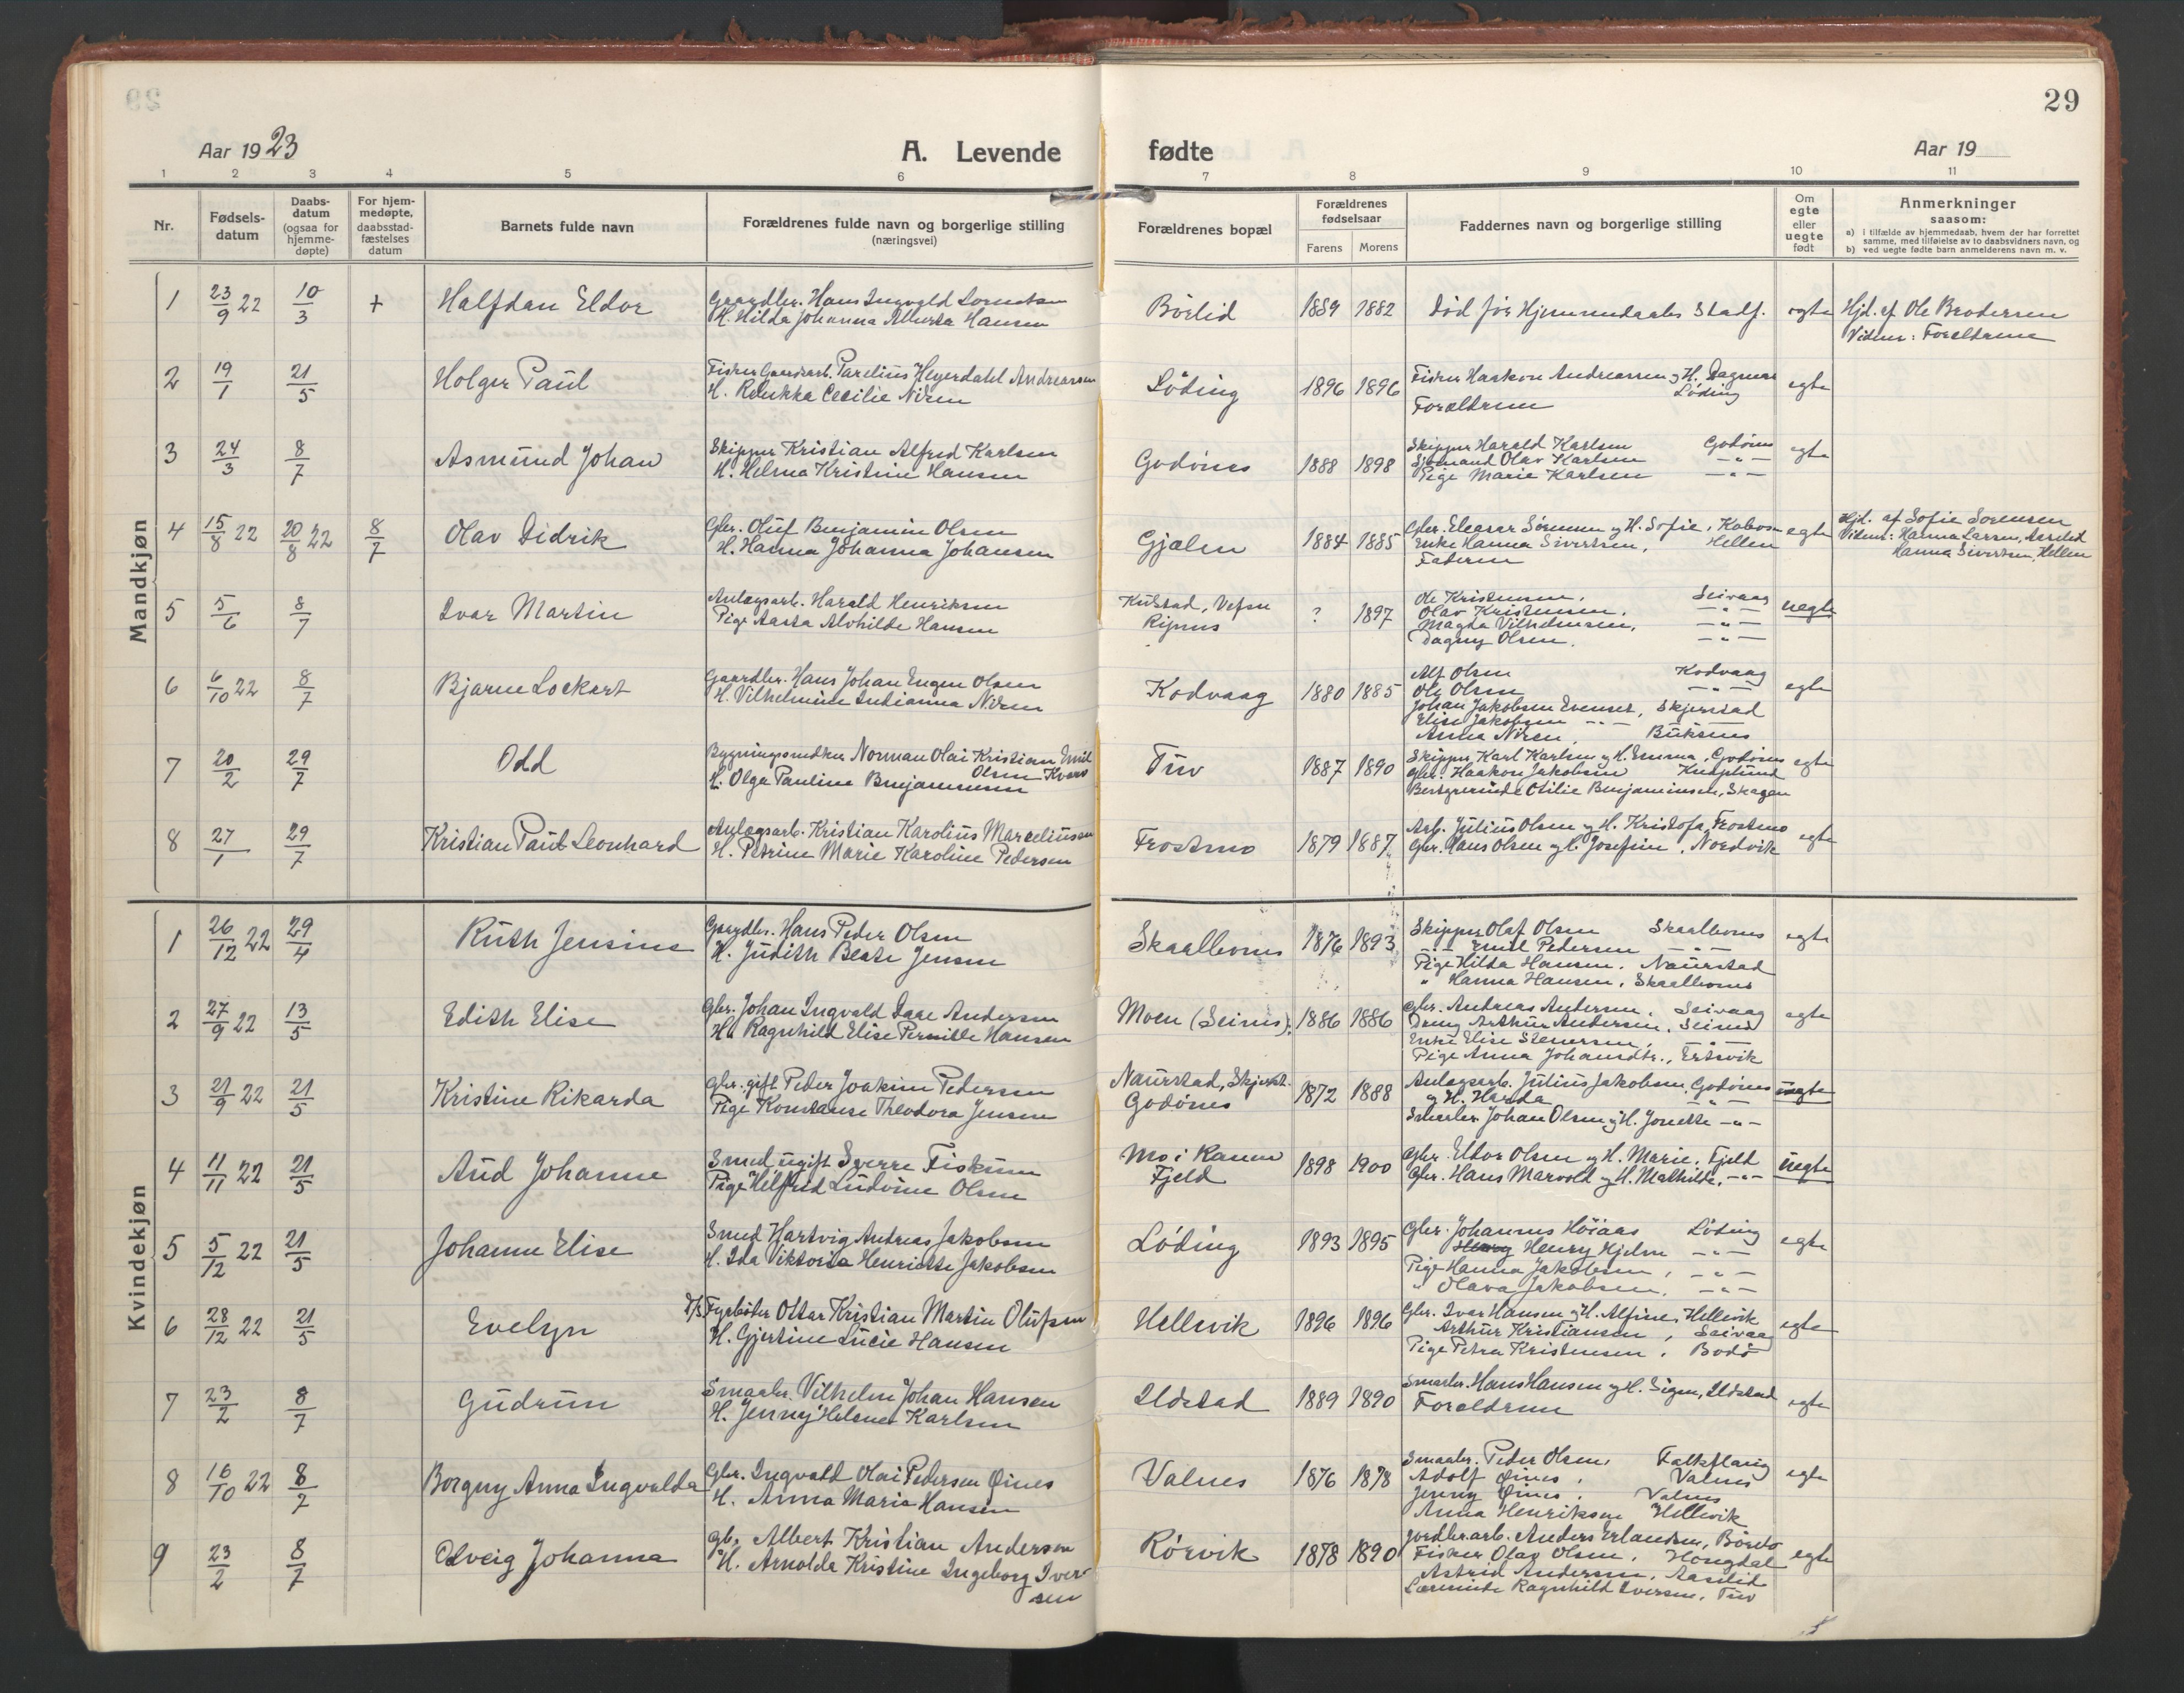 29
Aar 1923
A. Levende fødte
Aar 19
1 2 3 4 5 6 7 8 9 10 11
Nr.
Fødsels-
datum
Daabs-
datum
(ogsaa for
hjemme-
døpte)
For hjem-
medøpte,
daabsstad-
fæstelses
datum
Barnets fulde navn
Forældrenes fulde navn og borgerlige stilling
(næringsvei)
Forældrenes bopæl
Forældrenes
fødselsaar
Farens Morens
Faddernes navn og borgerlige stilling
Om
egte
eller
uegte
født
Anmerkninger
saasom:
a) i tilfælde av hjemmedaab, hvem der har forrettet
samme, med tilføielse av to daabsvidners navn, og
b) ved uegte fødte barn anmelderens navn m. v.
Mandkjøn
1 23/9 22 10/3 + Halfdan Eldor
Gaardbr. Hans Ingvald
H. Hilda Johanna Alberta Hansen
Börlid 1889 1882
Död før Hjemmedaabs Stadf. egte
Hjd. af Ole Brodersen
Vidner: Forældrene
2 19/1 21/5 Holger Paul
Fisker Gaardsarb. Parelius Heyerdahl Andreassen
H. Rebekka Cecilie Niren
Löding 1896 1896
Fisker Haakon Andreassen og H. Dagmar
Löding
Forældrene
egte
3 24/3 8/7 Asmund Johan
Skipper Kristian Alfred Karlsen
H. Helma Kristine Hansen
Godönes 1888 1898
Skipper Harald Karlsen Godönes
Sjömand Olav Karlsen —"—
Pige Marie Karlsen —"—
egte
4 15/8 22 20/8 22 8/7 Olav Didrik
Gbr. Oluf Benjamin Olsen
H. Hanna Johanna Johansen
Gjælen 1884 1885
Gbr. Eleasar Sörensen og H. Sofie,
Enke Hanna Sivertsen, Hellen
Faderen
egte
Hjd. af Sofie Sorensen
Vidner: Hanna Larsen, Aaselid
Hanna Sivertsen, Hellen
5 5/6 8/7 Ivar Martin
Anlægsarb. Harald Henriksen
Pige Aasta Alvhilde Hansen
Kulstad, Vefsn
Ripnes
? 1897
Ole Kristensen, Seivaag
Olav Kristensen, —"—
Magda Vilhelmsen, —"—
Dagny Olsen, —"—
uegte
6 6/10 22 8/7 Bjarne Lockert
Gaardbr. Hans Johan Eugen Olsen
H. Vilhelmine Indianna Niren
Kodvaag 1880 1885
Alf Olsen Kodvaag
Ole Olsen —"—
Johan Jakobsen Evenset, Skjerstad
Elise Jakobsen —"—
Anna Niren, Buksnes
egte
7 20/2 29/7 Odd
Bygningssnedker Norman Olai Kristian Emil
Olsen Kvero
H. Olga Pauline Benjaminsen
Tuv 1887 1890
Skipper Karl Karlsen og H. Emma, Godönes
Gbr. Haakon Jakobsen Knaplund
Bestyrerinde Otilie Benjaminsen, Skagen
egte
8 27/1 29/7 Kristian Paul Leonhard
Anlægsarb. Kristian Karolius Marceliussen
H. Petrine Marie Karoline Pedersen
Frostmo 1879 1887
Arb. Julius Olsen og H. Kristofa, Frostmo
Gbr. Hans Olsen og H. Josefine, Nordvik
egte
Kvindekjøn
1 26/12 22 29/4 Ruth Jensine
Gaardbr. Hans Peder Olsen
H. Judith Beate Jensen
Skaalbones 1876 1893
Skipper Olaf Olsen Skaalbones
—"— Emil Pedersen —"—
Pige Hilda Hansen, Naurstad
" Hanna Hansen, Skaalbones
egte
2 27/9 22 13/5 Edith Elise
Gbr. Johan Ingvald Daae Andersen
H. Ragnhild Elise Pernille Hansen
Moen (Seines) 1886 1886
Gbr. Andreas Andersen, Seivaag
Dreng Arthur Andersen, Seines
Enke Elise Stenersen, —"—
Pige Anna Johansdtr., Ertsvik
egte
3 21/9 22 21/5 Kristine Rikarda
Gbr. gift Peder Joakim Pedersen
Pige Konstanse Theodora Jensen
Naurstad, Skjerst.
Godönes
1872 1888
Anlægsarb. Julius Jakobsen, Godönes
og H. Harda —"—
Smaabr. Johan Olsen og H. Jonette —"—
uegte
4 11/11 22 21/5 Aud Johanne
Smed ugift Sverre Fiskum
Pige Helfred Ludvine Olsen
Mo i Ranen
Fjeld
1898 1900
Gbr. Eldor Olsen og H. Marie, Fjeld
Gbr. Hans Marvold og H. Mathilde, —"—
uegte
5 5/12 22 21/5 Johanne Elise
Smed Hartvig Andreas Jakobsen
H. Ida Viktoria Henriette Jakobsen
Löding 1893 1895
Gbr. Johannes Höiaas Löding
Henry Hjelm —"—
Pige Hanna Jakobsen, —"—
" Olava Jakobsen, —"—
egte
6 28/12 22 21/5 Evelyn
D/S Fyrböter Ottar Kristian Martin Olufsen
H. Gjertine Lucie Hansen
Hellevik 1896 1896
Gbr. Ivar Hansen og H. Alfine, Hellevik
Arthur Kristiansen, Seivaag
Pige Petra Kristensen, Bodö
egte
7 23/2 8/7 Gudrun
Smaabr. Vilhelm Johan Hansen
H. Jenny Helene Karlsen
Ildstad 1889 1890
Smaabr. Hans Hansen og H. Signe, Ildstad
Forældrene
egte
8 16/10 22 8/7 Borgny Anna Ingvalda
Gbr. Ingvald Olai Pedersen Öines
H. Anna Maria Hansen
Valnes 1876 1878
Smaabr. Peder Olsen, Falkflaug
Adolf Öines, Valnes
Jenny Öines, Valnes
Anna Henriksen Hellevik
egte
9 23/2 8/7 Odveig Johanna
Gb. Albert Kristian Andersen
H. Arnolda Kristine Ingeborg Iver-
sen
Rörvik 1878 1890
Jordbr.arb. Anders Erlandsen,
Fisker Olav Olsen, Hongdal
Astrid Andersen, Aaselid
Lærerinde Ragnhild Iversen, Tuv
egte